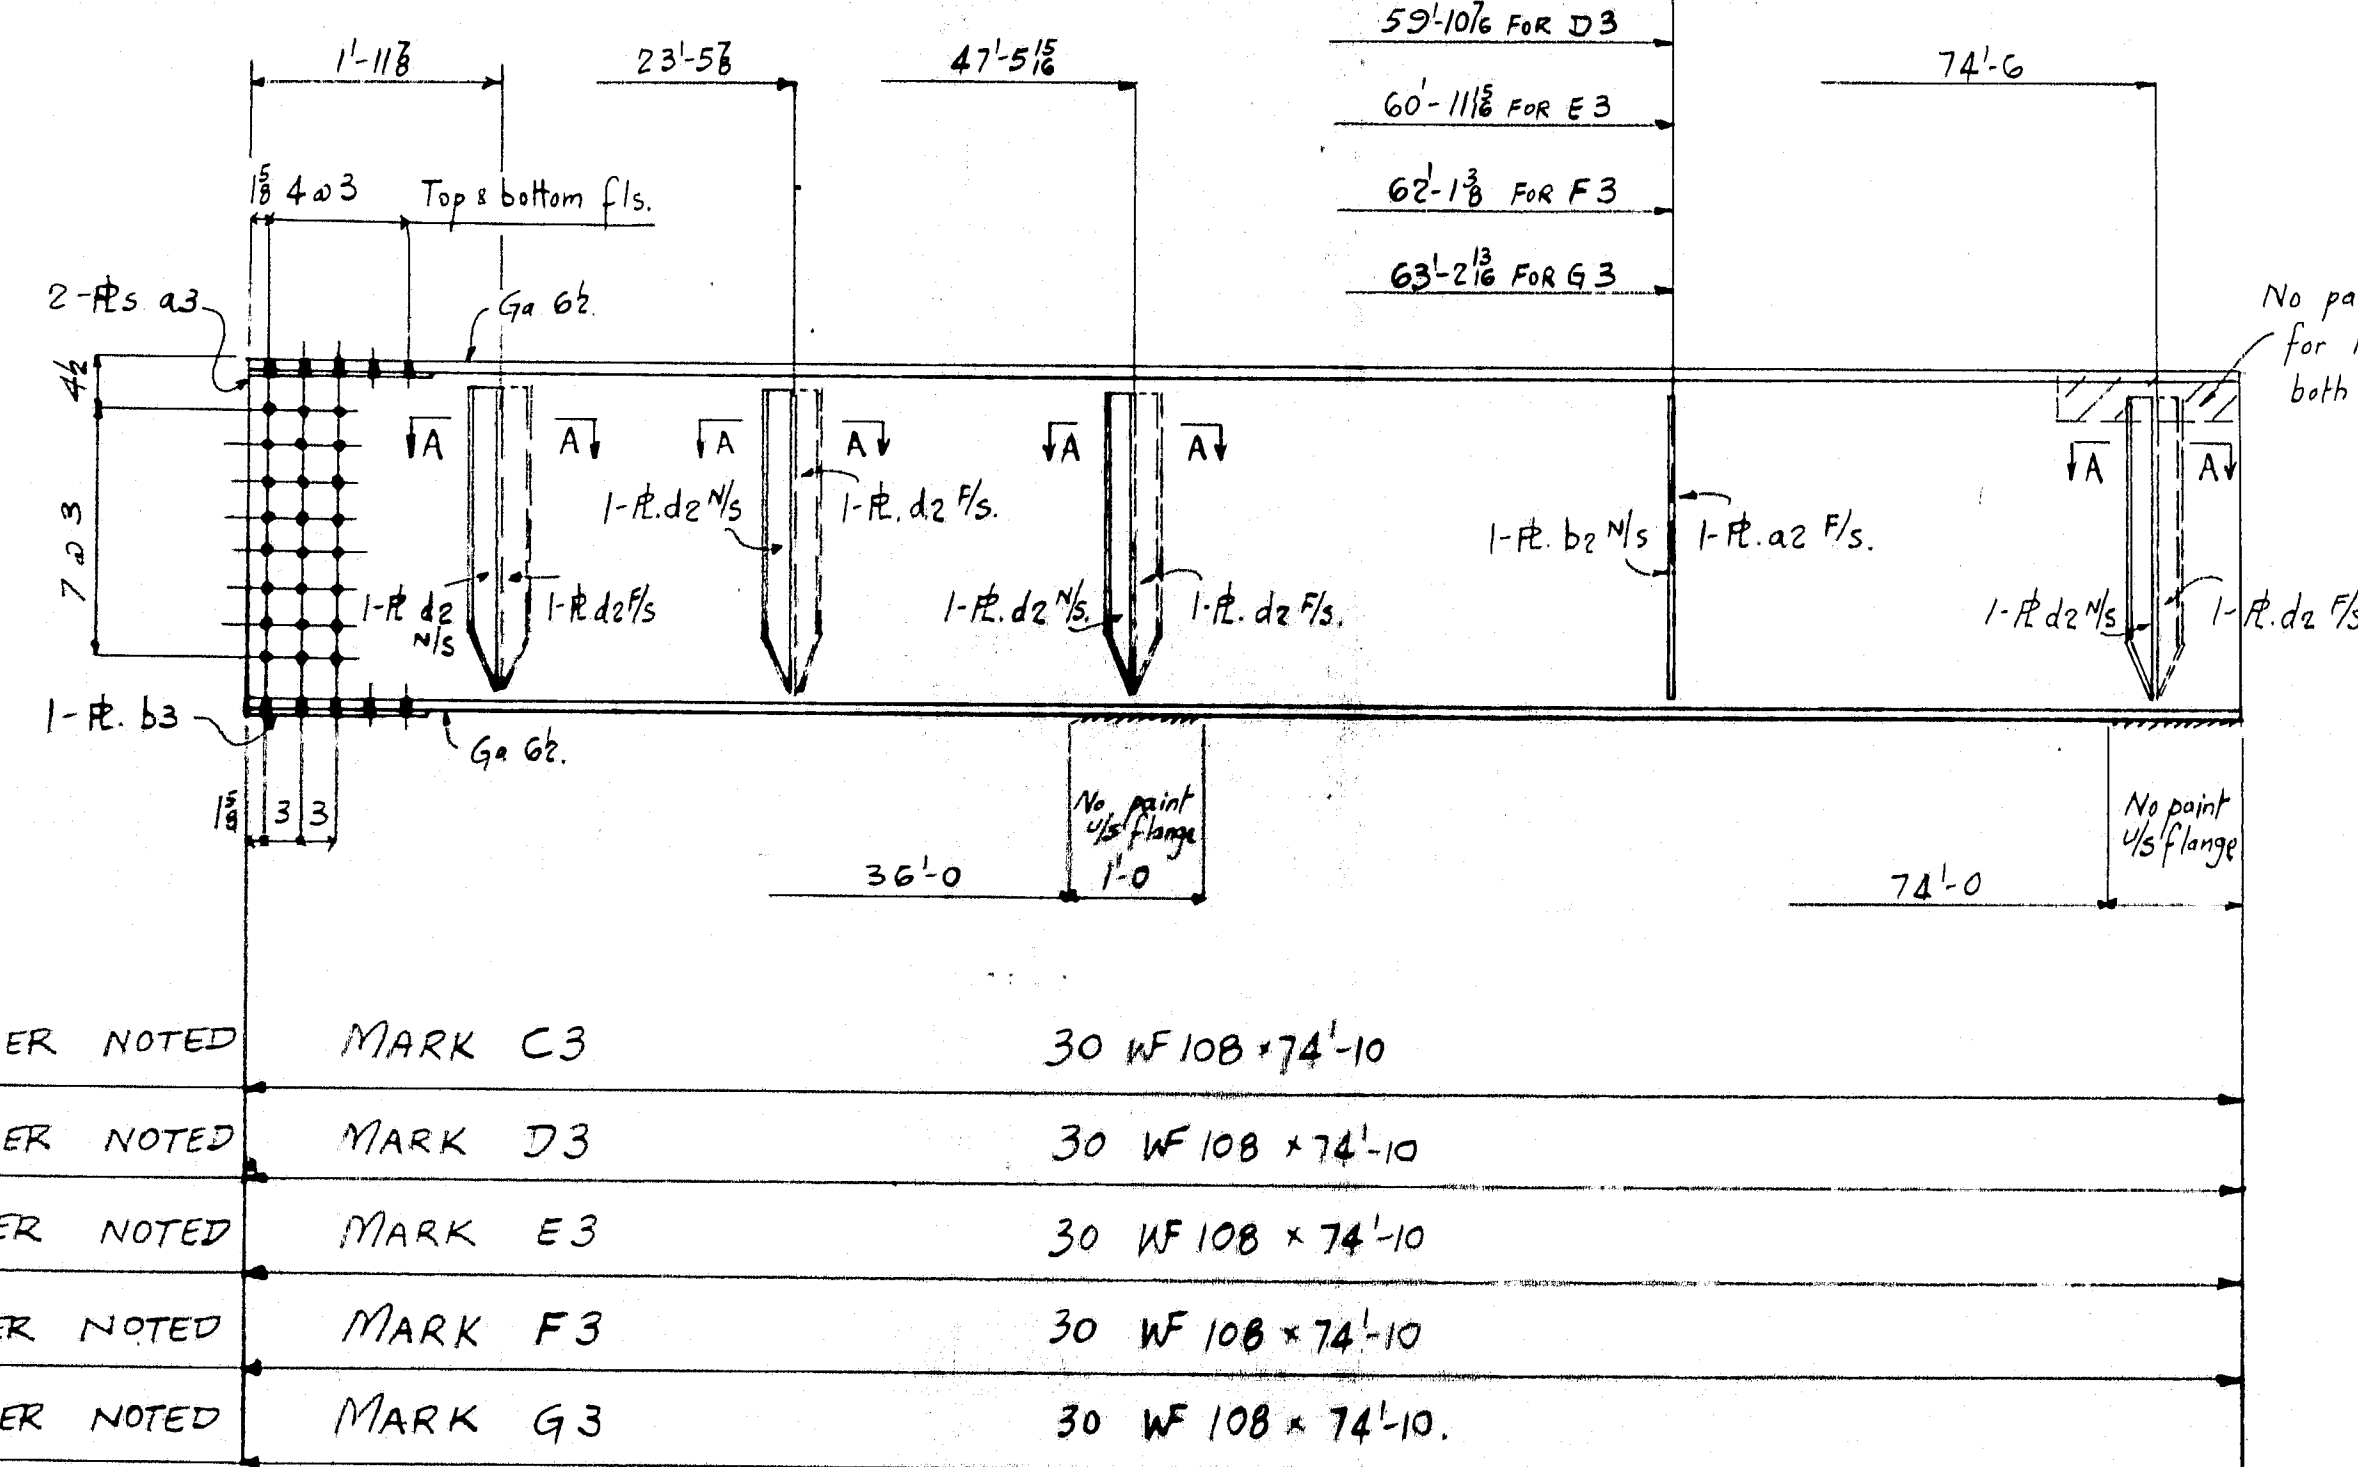 59'-10 7/16 FOR D3
1'-11 7/8
23'-5 7/8
47'-5 15/16
74'-6
60'-11 15/16 FOR E3
62'-1 3/8 FOR F3
63'-2 13/16 FOR G3
1 5/8 4 @ 3 Top & bottom fls.
2-PLs a3
Ga 6 1/2.
No pa
for
both
4 1/2
7 @ 3
A A A A A A A A
1-PL.d2 N/s
1-PL.d2 F/s.
1-PL. b2 N/s
1-PL.a2 F/s.
1-PL d2 N/s
1-PL d2 F/s
1-PL.d2 N/s.
1-PL.d2 F/s.
1-PL d2 N/s
1-PL.d2 F/s
1-PL. b3
Ga 6 1/2.
1 5/8 3 3
No paint
u/s flange
1'-0
36'-0
No paint
u/s flange
74'-0
ER NOTED MARK C3 30 WF 108 x 74'-10
ER NOTED MARK D3 30 WF 108 x 74'-10
ER NOTED MARK E3 30 WF 108 x 74'-10
ER NOTED MARK F3 30 WF 108 x 74'-10
ER NOTED MARK G3 30 WF 108 x 74'-10.